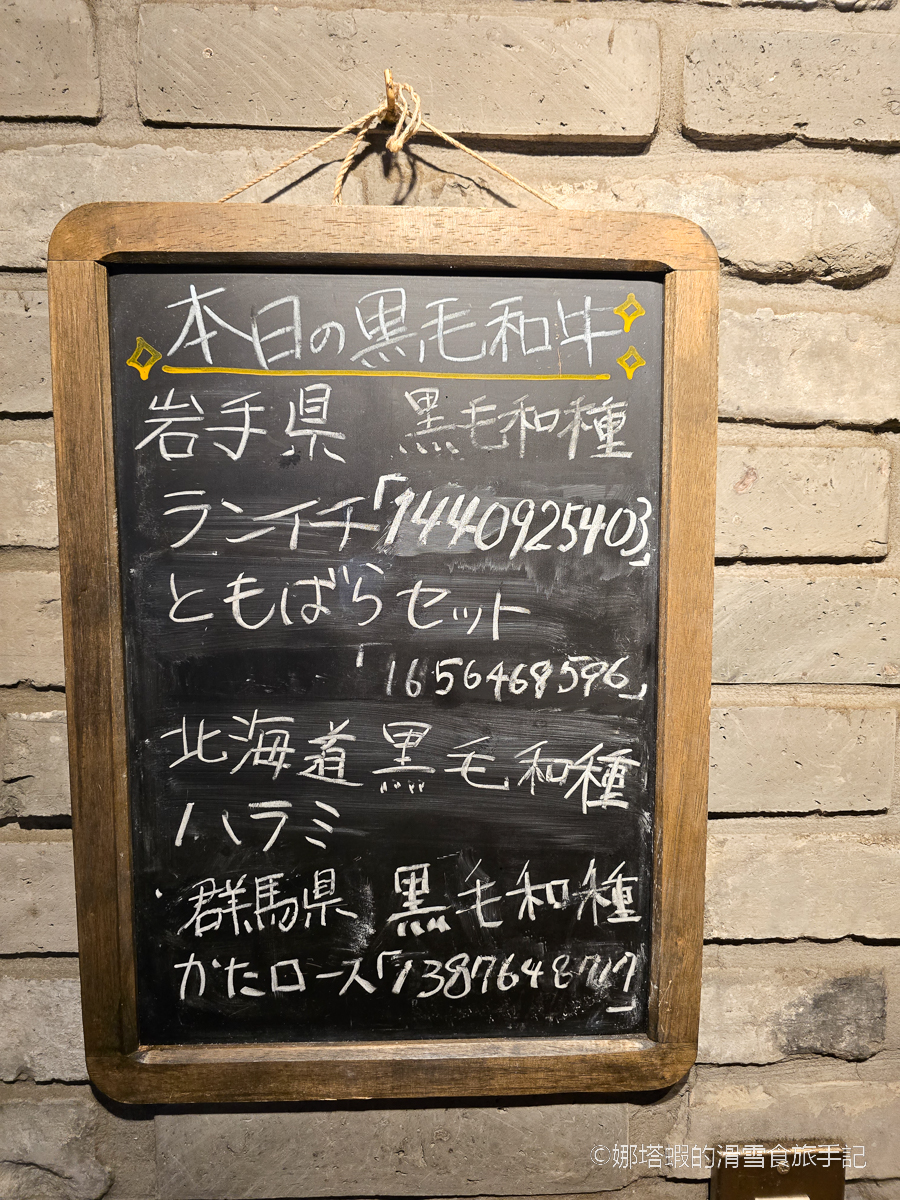 本日の黒毛和牛
岩手県 黒毛和種
ランイチ「1440925403」
ともばらセット
「1656468596」
北海道黒毛和種
ハラミ
群馬県 黒毛和種
かたロース「1387648717」
©娜塔蝦的滑雪食旅手記